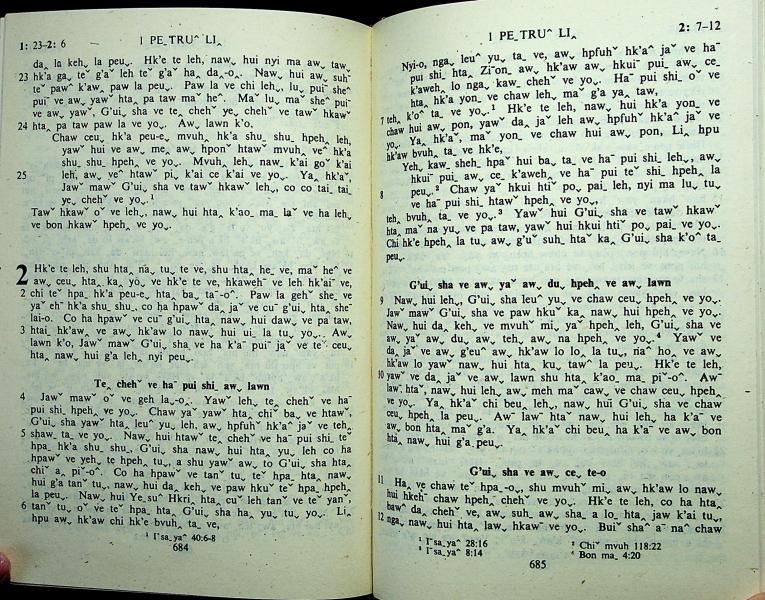 1: 23–2: 6
I PE_TRUˆ LI‸
da‸ la keh‸ la peu⌄. Hk'e te leh, naw⌄ hui nyi ma aw⌄ taw⌄
23 hk'a ga⌄ teˇ g'aˇ leh teˇ g'aˇ ha⌄ da‸-o‸. Naw⌄ hui aw⌄ suhˉ
teˇ pawˆ k'aw‸ paw la peu⌄. Paw la ve chi leh⌄, lu⌄ puiˉ sheˆ
puiˉ ve aw⌄ yawˇ hta‸ pa taw maˇ heˆ. Maˇ lu⌄ maˇ sheˆ puiˉ
ve aw⌄ yawˇ, G'ui⌄ sha ve te‸ chehˇ ye⌄ chehˇ ve tawˇ hkawˇ
24 hta‸ pa taw paw la ve yo⌄. Aw⌄ lawn k'o⌄.
Chaw ceu⌄ hk'a peu-e‸ mvuh⌄ hk'a shu⌄ shu⌄ hpeh⌄ leh,
yawˇ hui ve aw⌄ me‸ aw⌄ hponˇ htawˇ mvuh⌄ veˆ hk'a
shu⌄ shu⌄ hpeh⌄ ve yo⌄. Mvuh⌄ leh⌄ naw⌄ k'ai goˇ k'ai
25 leh, aw⌄ veˆ htawˇ pi⌄ k'ai ce k'ai ve yo⌄. Ya‸ hk'aˇ,
Jawˇ mawˇ G'ui⌄ sha ve tawˇ hkaw⌄ leh⌄, co co tai‸ tai‸
ye⌄ chehˇ ve yo⌄.¹
Tawˇ hkawˇ oˇ ve leh⌄, naw⌄ hui hta‸ k'ao‸ ma‸ laˇ ve ha leh,
ve bon hkawˇ hpeh⌄ ve yo⌄.
2 Hk'e te leh, shu hta‸ na‸ tu⌄ te ve, shu hta‸ he⌄ ve, maˇ heˆ ve
aw⌄ ceu⌄ hta‸ ka⌄ yo⌄ ve hk'e te ve, hkawehˇ ve leh hk'aiˇ ve,
2 chiˇ teˇ hpa‸ hk'a peu-e‸ hta‸ ba⌄ taˉ-oˆ. Paw la gehˇ she⌄ ve
lai-o. Co ha hpawˇ ve cuˉ g'ui⌄ hta‸ naw⌄ hui daw⌄ ve pa taw,
3 htai‸ hk'aw⌄ ve aw⌄ hk'aw lo naw⌄ hui ui‸ la tu⌄ yo⌄. Aw⌄
lawn k'o, Jawˇ mawˇ G'ui⌄ sha ve ha k'aˉ puiˉ jaˇ ve teˇ ceu⌄
hta‸ naw⌄ hui g'a leh⌄ nyi peu⌄.
Te‸ chehˇ ve haˉ pui shi‸ aw⌄ lawn
4 Jawˇ mawˇ oˇ ve geh la⌄-o‸. Yawˇ leh⌄ te‸ chehˇ ve haˉ
pui shi‸ hpeh⌄ ve yo⌄. Chaw yaˇ yawˇ hta‸ chiˇ ba⌄ ve htawˇ,
G'ui⌄ sha yawˇ hta‸ leuˆ yu⌄ leh, aw⌄ hpfuhˇ hk'aˆ jaˇ ve teh⌄
5 shaw‸ ta‸ ve yo⌄. Naw⌄ hui htawˇ te‸ chehˇ ve haˉ pui shi‸ teˇ
hpa‸ hk'a shu⌄ shu⌄, G'ui⌄ sha naw⌄ hui hta‸ yu⌄ leh co ha
hpawˇ ve yeh⌄ teˇ hpeh⌄ tu⌄, a shu yawˇ aw⌄ to G'ui⌄ sha hta‸
chiˇ a‸ piˇ-oˆ. Co ha hpawˇ ve tanˇ tu⌄ teˇ hpa‸ hta‸ naw⌄
hui g'a tanˇ tu⌄, naw⌄ hui da‸ keh⌄ ve paw hkuˇ teˇ hpa‸ hpeh⌄
la peu⌄. Naw⌄ hui Ye⌄suˆ Hkri⌄ hta‸ cuˇ leh tanˇ ve teˇ yanˇ,
6 tanˇ tu⌄ oˇ ve teˇ hpa‸ hta‸ G'ui⌄ sha ha‸ yu⌄ tu⌄ yo⌄. Li‸
hpu aw⌄ hk'aw chi hk'e bvuh⌄ ta‸ ve,
¹ Iˇsa‸yaˆ 40:6-8
684
I PE_TRUˆ LI‸
2: 7–12
Nyi-o, nga‸ leuˆ yu⌄ ta‸ ve, aw⌄ hpfuhˇ hk'aˆ jaˇ ve haˉ
pui shi‸ hta‸ Ziˉon‸ aw⌄ hk'aw aw⌄ hkuiˉ pui‸ aw⌄ ce‸
k'aweh‸ lo nga‸ kaw‸ chehˇ ve yo⌄. Haˉ pui shi‸ oˇ ve
hta‸ hk'a yon‸ ve chaw leh⌄ maˇ g'a ya‸ taw⌄
teh⌄ k'oˆ ta‸ ve yo⌄.¹
7 Hk'e te leh, naw⌄ hui hk'a yon‸ ve
chaw hui aw⌄ pon⌄ yawˇ da‸ jaˇ leh aw⌄ hpfuhˇ hk'aˆ jaˇ ve
yo⌄. Ya‸ hk'aˇ, maˇ yon‸ ve chaw hui aw⌄ pon, Li‸ hpu
hk'aw bvuh⌄ ta‸ ve hk'e,
Yeh⌄ kaw‸ sheh‸ hpaˇ hui ba⌄ ta‸ ve haˉ pui shi‸ leh⌄, aw⌄
hkuiˉ pui‸ aw⌄ ce‸ k'aweh⌄ ve haˉ pui teˇ shi‸ hpeh⌄ la
peu⌄.²
8 Chaw yaˇ hkui htiˇ po⌄ pai‸ leh, nyi ma lu⌄ tu⌄
ve haˉ pui shi‸ htawˇ hpeh⌄ ve yo⌄,
teh⌄ bvuh⌄ ta‸ ve yo⌄.³ Yawˇ hui G'ui⌄ sha ve tawˇ hkawˇ
hta‸ maˇ na yu⌄ ve pa taw, yawˇ hui hkui htiˇ po⌄ pai‸ ve yo⌄.
Chi hk'e hpeh⌄ la tu⌄ aw⌄ g'uˇ suh‸ htaˇ ka‸ G'ui⌄ sha k'oˆ ta‸
peu⌄.
G'ui⌄ sha ve aw⌄ yaˇ aw⌄ du⌄ hpeh⌄ ve aw⌄ lawn
9 Naw⌄ hui leh⌄, G'ui⌄ sha leuˆ yu⌄ ve chaw ceu⌄ hpeh⌄ ve yo⌄.
Jawˇ mawˇ G'ui⌄ sha ve paw hkuˇ ka‸ naw⌄ hui hpeh⌄ ve yo⌄.
Naw⌄ hui da‸ keh⌄ ve mvuhˇ mi⌄ yaˇ hpeh⌄ leh, G'ui⌄ sha ve
aw⌄ yaˇ aw⌄ du⌄ aw⌄ teh⌄ aw⌄ na hpeh⌄ ve yo⌄.⁴ Yawˇ ve
da‸ jaˇ ve aw⌄ g'euˆ aw⌄ hk'aw lo lo‸ la tu⌄, naˆ ho‸ ve aw⌄
hk'aw lo yawˇ naw⌄ hui hta‸ ku⌄ tawˆ la peu⌄. Hk'e te leh,
10 yawˇ ve da‸ jaˇ ve aw⌄ lawn shu hta‸ k'ao‸ ma‸ piˇ-oˆ. Awˉ
lawˇ htaˇ, naw⌄ hui leh⌄ aw⌄ meh maˇ caw⌄ ve chaw ceu⌄ hpeh⌄
ve yo⌄. Ya‸ hk'aˇ chi beu⌄ leh⌄, naw⌄ hui G'ui⌄ sha ve chaw
ceu⌄ hpeh⌄ la peu⌄. Awˉ lawˇ htaˇ naw⌄ hui leh⌄ ha k'aˉ ve
aw⌄ bon hta‸ maˇ g'a. Ya‸ hk'aˇ chi beu⌄ ha k'aˉ ve aw⌄ bon
hta‸ naw⌄ hui g'a peu⌄.
G'ui⌄ sha ve aw⌄ ce⌄ te-o
11 Ha‸ ve chaw teˇ hpa‸-o‸, shu mvuhˇ mi⌄ aw⌄ hk'aw lo naw⌄
hui hkehˆ chaw hpeh⌄ chehˇ ve yo⌄. Hk'e te leh, co ha hta‸
bawˆ da‸ chehˇ ve, aw⌄ suh⌄ aw⌄ sha‸ a lo‸ hta‸ jaw k'ai tu⌄,
12 nga‸ naw⌄ hui hta‸ law⌄ hkawˉ ve yo⌄. Buiˇ shaˆ aˉ naˆ chaw
¹ Iˇsa‸yaˆ 28:16
² Iˇsa‸yaˆ 8:14
³ Chiˇ mvuh 118:22
⁴ Bon ma‸ 4:20
685